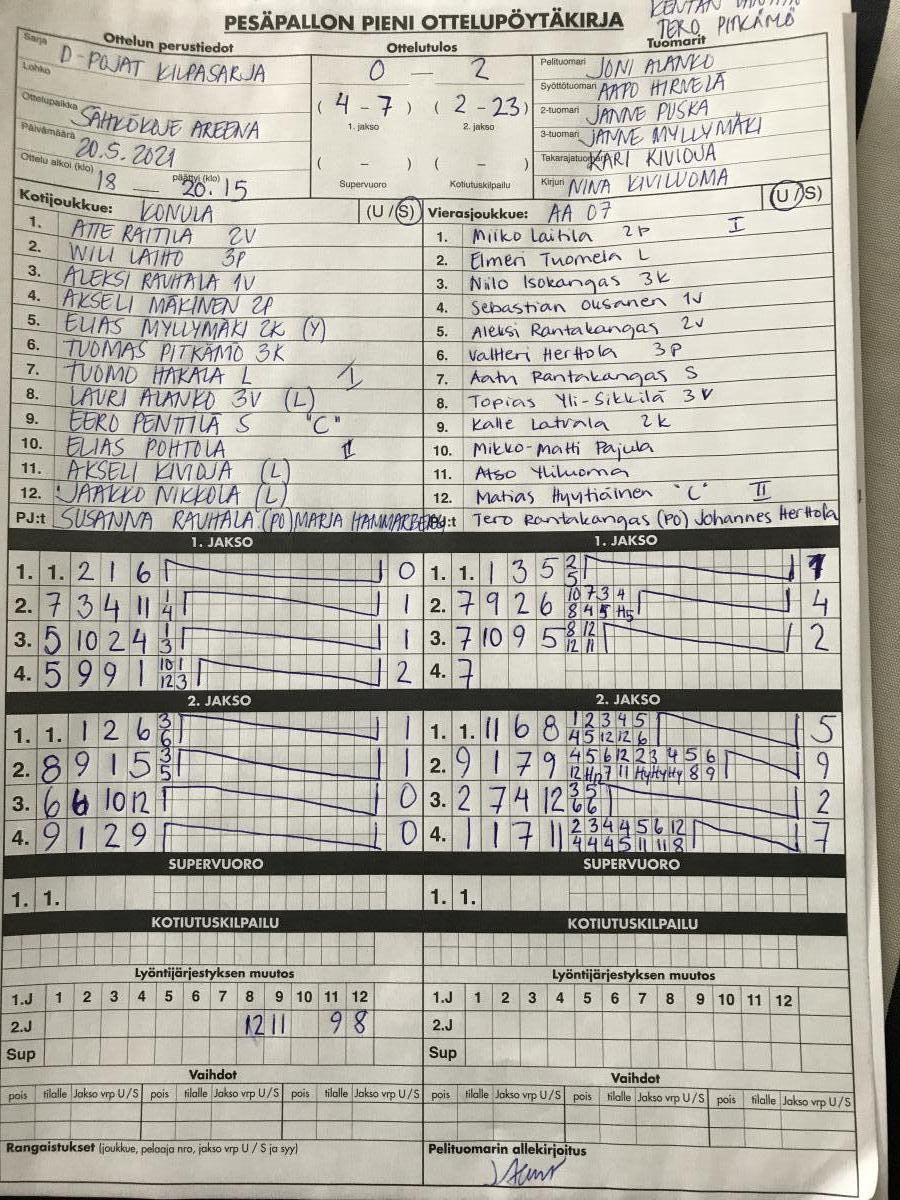 PESÄPALLON PIENI OTTELUPÖYTÄKIRJA
KENTÄN
TERO PITKÄMÖ
Ottelun perustiedot
Ottelutulos
Tuomarit
Sarja D-POJAT KILPASARJA
Lohko
Ottelupaikka SÄHKÖKOJE AREENA
Päivämäärä 20.5.2021
Ottelu alkoi (klo) 18 — päättyi (klo) 20.15
0 — 2
( 4 - 7 ) ( 2 - 23 )
1. jakso 2. jakso
( - ) ( - )
Supervuoro Kotiutuskilpailu
Pelituomari JONI ALANKO
Syöttötuomari AAPO HIRVELÄ
2-tuomari JANNE PUSKA
3-tuomari JANNE MYLLYMÄKI
Takarajatuomari KARI KIVIOJA
Kirjuri NINA KIVILUOMA
Kotijoukkue: KONULA (U / S)
1. ATTE RAITILA 2V
2. WILI LAIHO 3P
3. ALEKSI RAUHALA 1V
4. AKSELI MÄKINEN 2P
5. ELIAS MYLLYMÄKI 2K (Y)
6. TUOMAS PITKÄMÖ 3K
7. TUOMO HAKALA L I
8. LAURI ALANKO 3V (L)
9. EERO PENTTILÄ S "C"
10. ELIAS POHTOLA II
11. AKSELI KIVIOJA (L)
12. JAAKKO NIKKOLA (L)
PJ:t SUSANNA RAUHALA (PO) MARJA HAMMARBERG
Vierasjoukkue: AA 07 (U / S)
1. Miiko Laitila 2P I
2. Elmeri Tuomela L
3. Niilo Isokangas 3K
4. Sebastian Ousanen 1V
5. Aleksi Rantakangas 2V
6. Valtteri Herttola 3P
7. Aatu Rantakangas S
8. Topias Yli-Sikkilä 3V
9. Kalle Latvala 2K
10. Mikko-Matti Pajula
11. Atso Yliluoma
12. Matias Hyytiäinen "C" II
PJ:t Tero Rantakangas (PO) Johannes Herttola
1. JAKSO
1. 1. 2 1 6 0
2. 7 3 4 11 1 4 1
3. 5 10 2 4 1 3 1
4. 5 9 9 1 10 1 12 3 2
1. JAKSO
1. 1. 1 3 5 2 5 1
2. 7 9 2 6 10 7 3 4 8 4 5 H5 4
3. 7 10 9 5 8 12 12 11 2
4. 7
2. JAKSO
1. 1. 1 2 6 3 6 1
2. 8 9 1 5 3 5 1
3. 6 6 10 12 0
4. 9 1 2 9 0
2. JAKSO
1. 1. 11 6 8 1 2 3 4 5 4 5 12 12 6 5
2. 9 1 7 9 4 5 6 12 2 3 4 5 6 12 7 11 8 9 9
3. 2 7 4 12 3 5 6 6 2
4. 1 1 7 11 2 3 4 4 5 6 12 4 4 4 5 11 11 8 7
SUPERVUORO
1. 1.
SUPERVUORO
1. 1.
KOTIUTUSKILPAILU
KOTIUTUSKILPAILU
Lyöntijärjestyksen muutos
1.J 1 2 3 4 5 6 7 8 9 10 11 12
2.J 12 11 9 8
Sup
Lyöntijärjestyksen muutos
1.J 1 2 3 4 5 6 7 8 9 10 11 12
2.J
Sup
Vaihdot
pois tilalle Jakso vrp U / S pois tilalle Jakso vrp U / S pois tilalle Jakso vrp U / S
Vaihdot
pois tilalle Jakso vrp U / S pois tilalle Jakso vrp U / S pois tilalle Jakso vrp U / S
Rangaistukset (joukkue, pelaaja nro, jakso vrp U / S ja syy)
Pelituomarin allekirjoitus